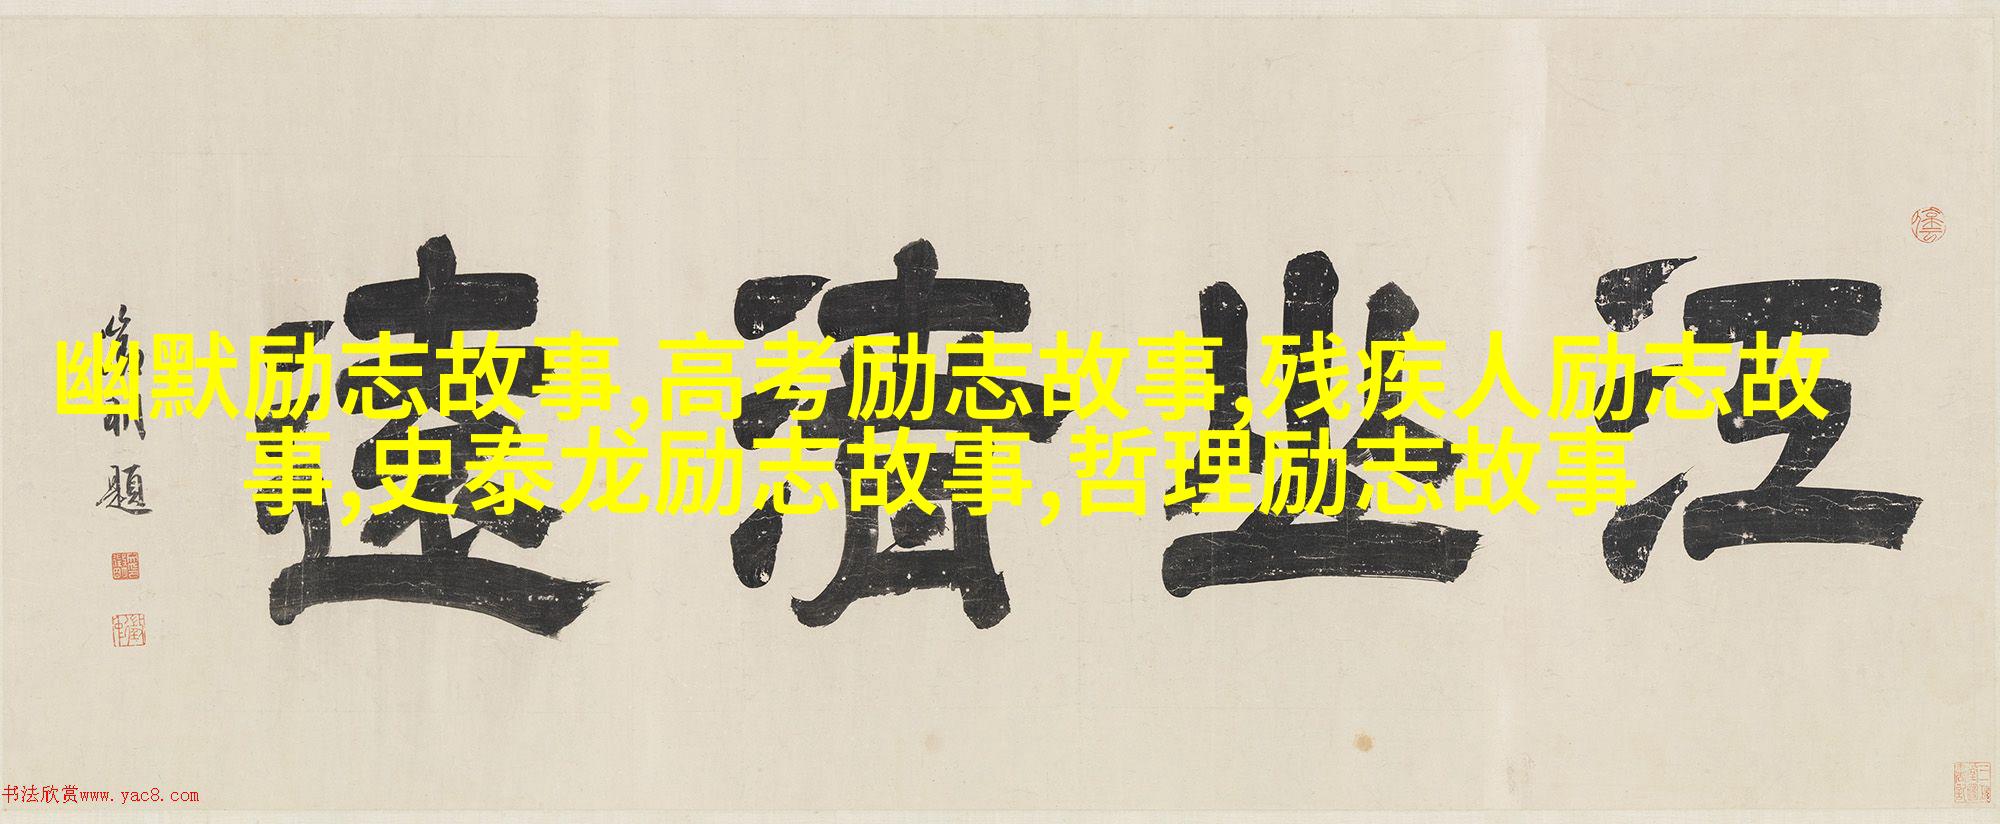 幽默励志故事,高考励志故事,残疾人励志故
事,史泰龙励志故事,哲理励志故事
江山清遠
題
书法欣赏www.yac8.com